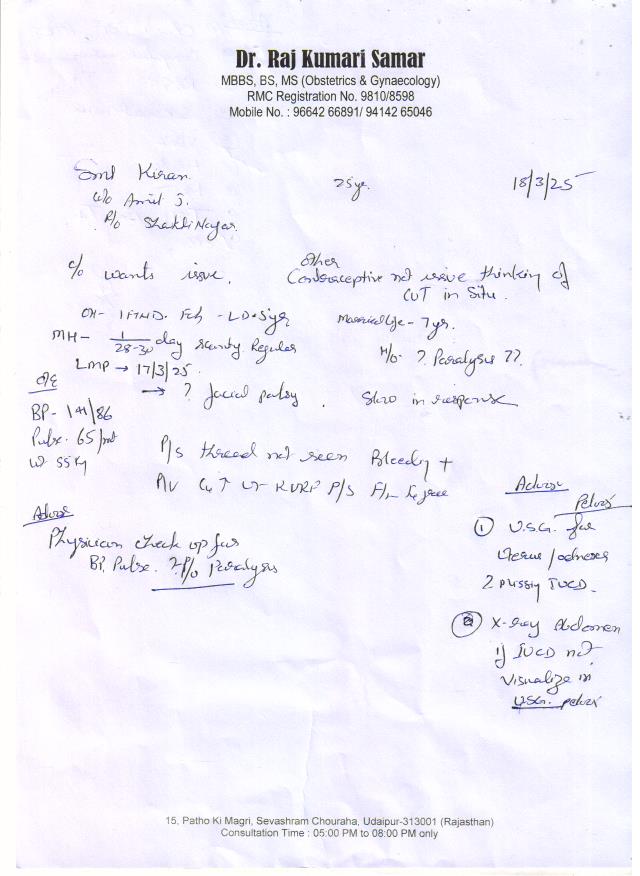 Dr. Raj Kumari Samar
MBBS, BS, MS (Obstetrics & Gynaecology)
RMC Registration No. 9810/8598
Mobile No. : 96642 66891/ 94142 65046
Smt Kiran 25yr. 18/3/25
w/o Amit J.
R/o - Shakti Nagar.
c/o wants issue. other
Contraceptive not issue thinking of
CuT in Situ.
OH- 1 FTND. Fch - LD-5yr Married life - 7yr.
MH- 1/28-30 day scanty Regular H/o- ? Paralysis ??
LMP → 17/3/25.
O/E → ? facial palsy. Slow in response
BP - 141/86
Pulse. 65/mt
wt 55kg
P/S thread not seen Bleeding +
P/V UT RVRF P/S
Advise
Physician check up for
BP, Pulse. ? Paralysis
Advise
Pelvis
① U.S.G. for
Uterus /adnexa
? missing IUCD.
② X-ray Abdomen
if IUCD not
Visualize in
USG. pelvis
15, Patho Ki Magri, Sevashram Chouraha, Udaipur-313001 (Rajasthan)
Consultation Time : 05:00 PM to 08:00 PM only